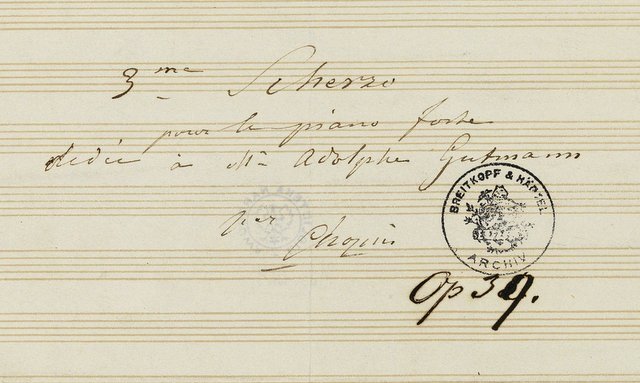 3me Scherzo
pour le piano forte
dediée à Mr Adolphe Gutmann
par
Chopin
BREITKOPF & HÄRTEL
ARCHIV
Op 39.